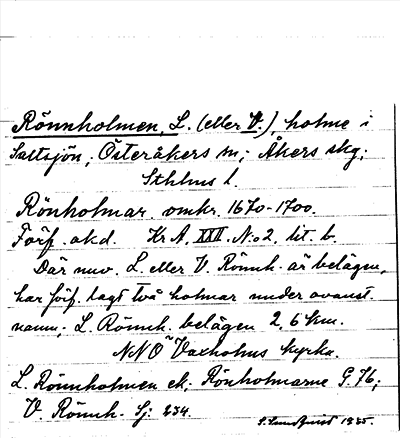 Rönnholmen, L. (eller V.), holme i
Saltsjön; Österåkers sn; Åkers skg;
Sthlms l.
Rönholmar. omkr. 1670-1700.
Förf. okd. Kr A, XXII. No 2. lit. b.
Där nuv. L. eller V. Rönnh. är belägen,
har förf. lagt två holmar under ovanst.
namn; L. Rönnh. belägen 2,6 km.
NNO ~ Vaxholms kyrka.
L. Rönnholmen ek. Rönholmarne G. 76;
V. Rönnh. Sj: 234.
S. Sundqvist 1935.